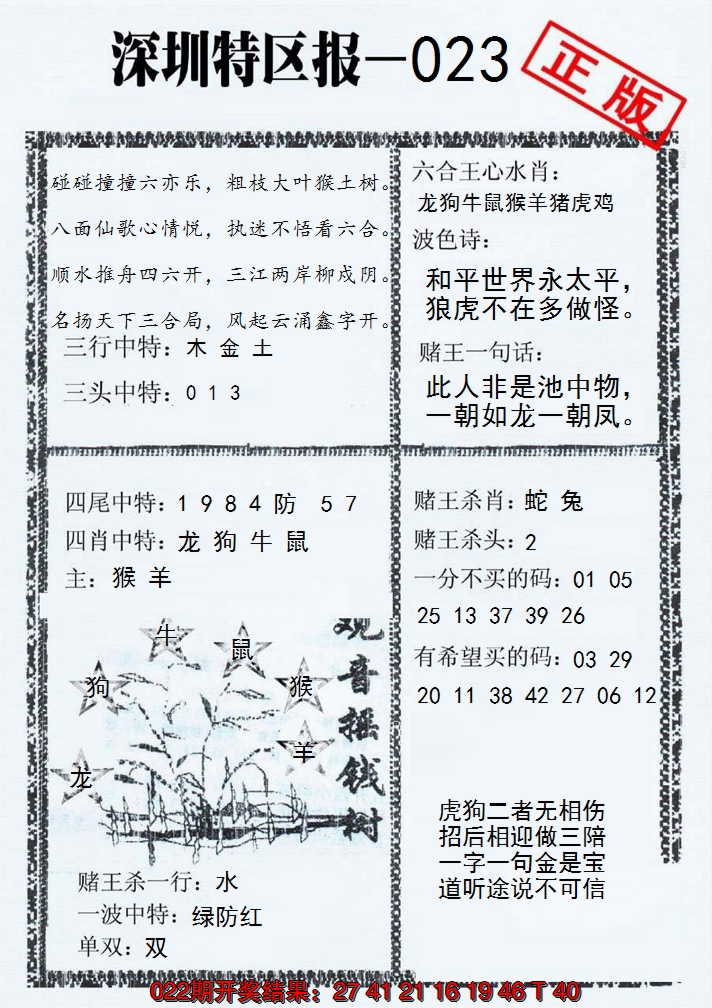 深圳特区报—023
正版
碰碰撞撞六亦乐，粗枝大叶猴土树。
八面仙歌心情悦，执迷不悟看六合。
顺水推舟四六开，三江两岸柳戍阴。
名扬天下三合局，风起云涌鑫字开。
三行中特：木 金 土
三头中特：0 1 3
六合王心水肖：
龙狗牛鼠猴羊猪虎鸡
波色诗：
和平世界永太平，
狼虎不在多做怪。
赌王一句话：
此人非是池中物，
一朝如龙一朝凤。
四尾中特：1 9 8 4 防 5 7
四肖中特：龙 狗 牛 鼠
主：猴 羊
观音摇钱树
牛
鼠
狗
猴
羊
龙
赌王杀一行：水
一波中特：绿防红
单双：双
赌王杀肖：蛇 兔
赌王杀头：2
一分不买的码：01 05
25 13 37 39 26
有希望买的码：03 29
20 11 38 42 27 06 12
虎狗二者无相伤
招后相迎做三陪
一字一句金是宝
道听途说不可信
022期开奖结果：27 41 21 16 19 46 T 40